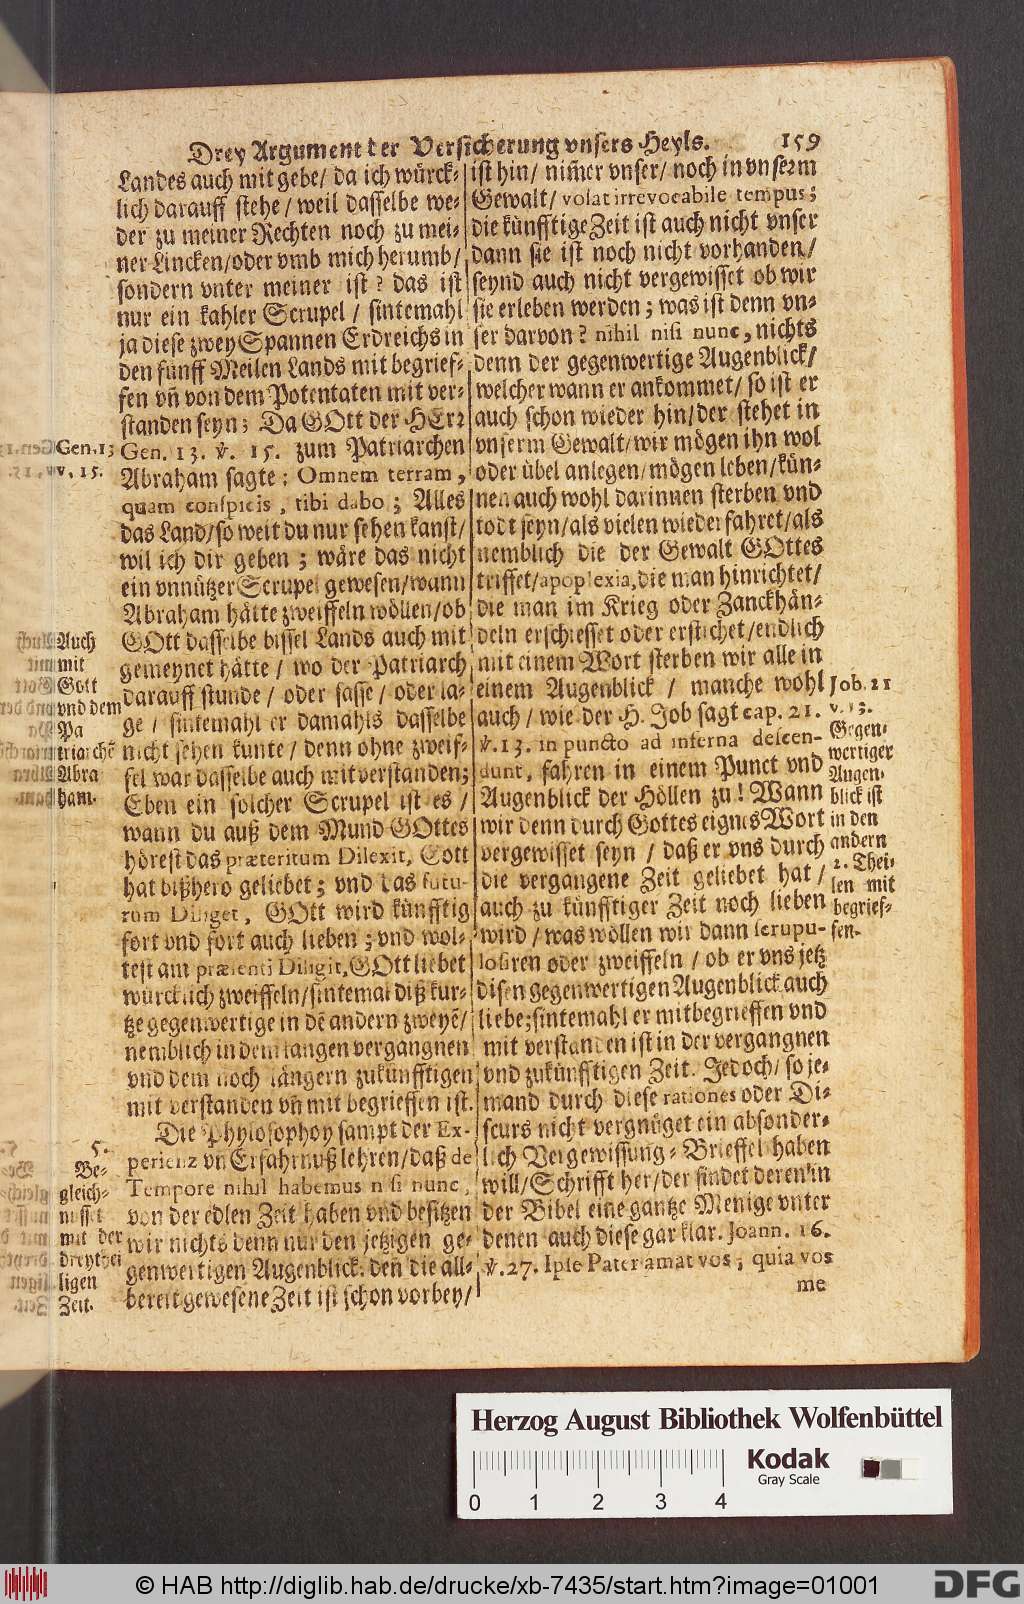 Drey Argument der Versicherung vnsers Heyls. 159
Landes auch mit gebe/ da ich würck-
lich darauff stehe/ weil dasselbe we-
der zu meiner Rechten noch zu mei-
ner Lincken/oder vmb mich herumb/
sondern vnter meiner ist? das ist
nur ein kahler Scrupel / sintemahl
ja diese zwey Spannen Erdreichs in
den fünff Meilen Lands mit begrief-
fen vñ von dem Potentaten mit ver-
standen seyn; Da GOtt der HErr
Gen. 13. ℣. 15. zum Patriarchen
Abraham sagte: Omnem terram,
quam conspicis, tibi dabo; Alles
das Land/so weit du nur sehen kanst/
wil ich dir geben; wäre das nicht
ein vnnützer Scrupel gewesen/wann
Abraham hätte zweiffeln wöllen/ob
GOtt dasselbe bissel Lands auch mit
gemeynet hätte / wo der Patriarch
darauff stunde / oder sasse / oder la-
ge / sintemahl er damahls dasselbe
nicht sehen kunte / denn ohne zweif-
fel war dasselbe auch mit verstanden;
Eben ein solcher Scrupel ist es /
wann du auß dem Mund GOttes
hörest das præteritum Dilexit, Gott
hat bißhero geliebet; vnd das futu-
rum Diliget, GOtt wird künfftig
fort vnd fort auch lieben; vnd wol-
test am præsenti Diligit, GOtt liebet
würcklich zweiffeln/sintemal diß kur-
tze gegenwertige in dẽ andern zweyẽ/
nemblich in dem langen vergangnen
vnd dem noch längern zukünfftigen
mit verstanden vñ mit begrieffen ist.
Die Phylosophoy sampt der Ex-
perienz vn Erfahrnuß lehren/daß de
Tempore nihil habemus nisi nunc,
von der edlen Zeit haben vnd besitzen
wir nichts denn nur den jetzigen ge-
genwertigen Augenblick. deñ die all-
bereit gewesene Zeit ist schon vorbey/
Gen. 13
v. 15.
Auch
mit
Gott
vnd dem
Pa
triarchẽ
Abra
ham.
5.
Be-
gleich-
nisset
mit der
dreytzei
ligen
Zeit.
ist hin/ nim̃er vnser/ noch in vnserm
Gewalt/ volat irrevocabile tempus;
die künfftige Zeit ist auch nicht vnser
dann sie ist noch nicht vorhanden/
seynd auch nicht vergewisset ob wir
sie erleben werden; was ist denn vn-
ser darvon? nihil nisi nunc, nichts
denn der gegenwertige Augenblick/
welcher wann er ankommet/ so ist er
auch schon wieder hin/der stehet in
vnserm Gewalt/wir mögen ihn wol
oder übel anlegen/mögen leben/kün-
nen auch wohl darinnen sterben vnd
todt seyn/als vielen wiederfahret/als
nemblich die der Gewalt GOttes
triffet/apoplexia, die man hinrichtet/
die man im Krieg oder Zanckhän-
deln erschiesset oder erstichet/endlich
mit einem Wort sterben wir alle in
einem Augenblick / manche wohl
auch / wie der H. Job sagt cap. 21.
℣. 13. in puncto ad inferna descen-
dunt, fahren in einem Punct vnd
Augenblick der Höllen zu! Wann
wir denn durch Gottes eignes Wort
vergewisset seyn / daß er vns durch
die vergangene Zeit geliebet hat /
auch zu künfftiger Zeit noch lieben
wird / was wöllen wir dann scrupu-
losiren oder zweiffeln / ob er vns jetz
disen gegenwertigen Augenblick auch
liebe; sintemahl er mitbegrieffen vnd
mit verstanden ist in der vergangnen
vnd zukünfftigen Zeit. Jedoch/ so je-
mand durch diese rationes oder Di-
scurs nicht vergnüget ein absonder-
lich Vergewissung-Brieffel haben
will/Schrifft her/der findet deren in
der Bibel eine gantze Menige vnter
denen auch diese gar klar. Joann. 16.
℣. 27. Ipse Pater amat vos, quia vos
me
Job. 21
v. 13.
Gegen-
wertiger
Augen-
blick ist
in den
andern
2. Thei-
len mit
begrief-
fen.
Herzog August Bibliothek Wolfenbüttel
Kodak
Gray Scale
0 1 2 3 4
© HAB http://diglib.hab.de/drucke/xb-7435/start.htm?image=01001
DFG